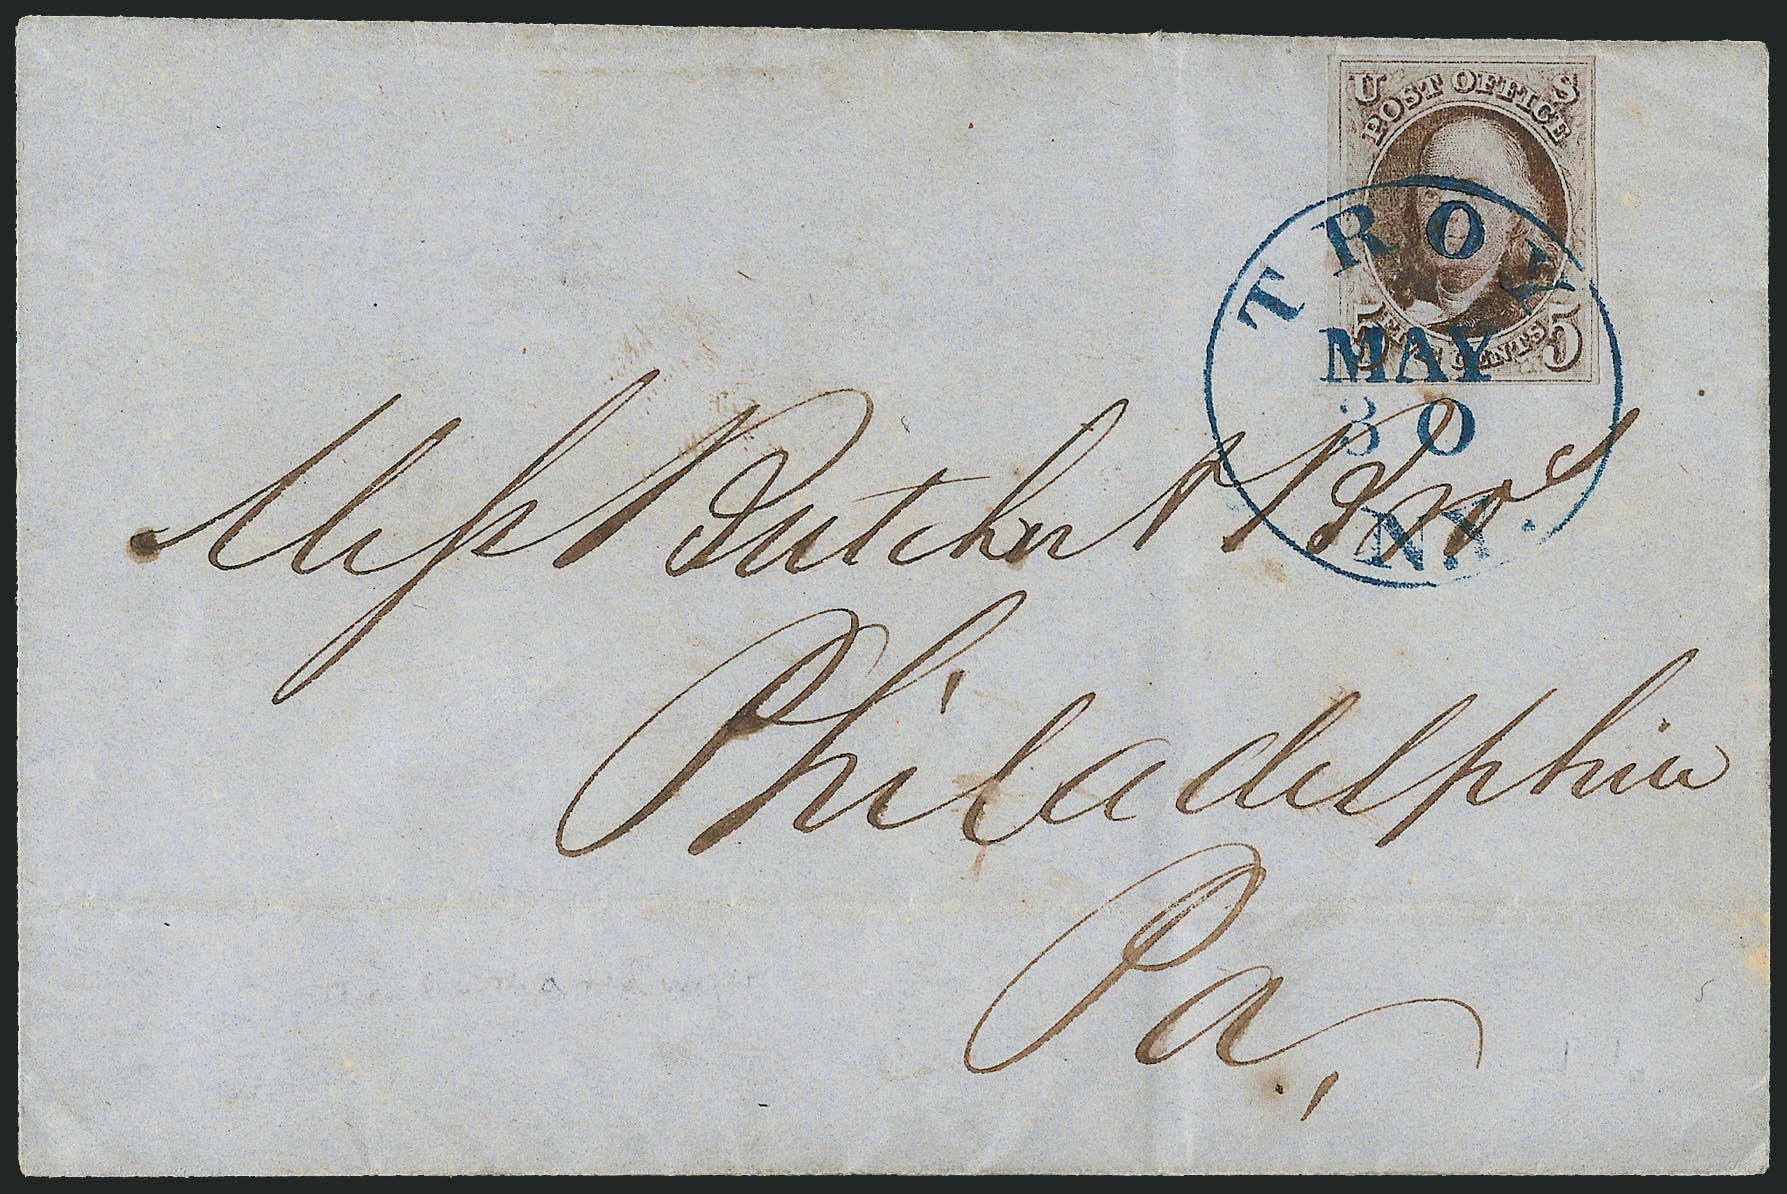 U S
POST OFFICE
5 FIVE CENTS 5
TROY
MAY
30
N.Y.
Mess Butcher & Bros
Philadelphia
Pa,